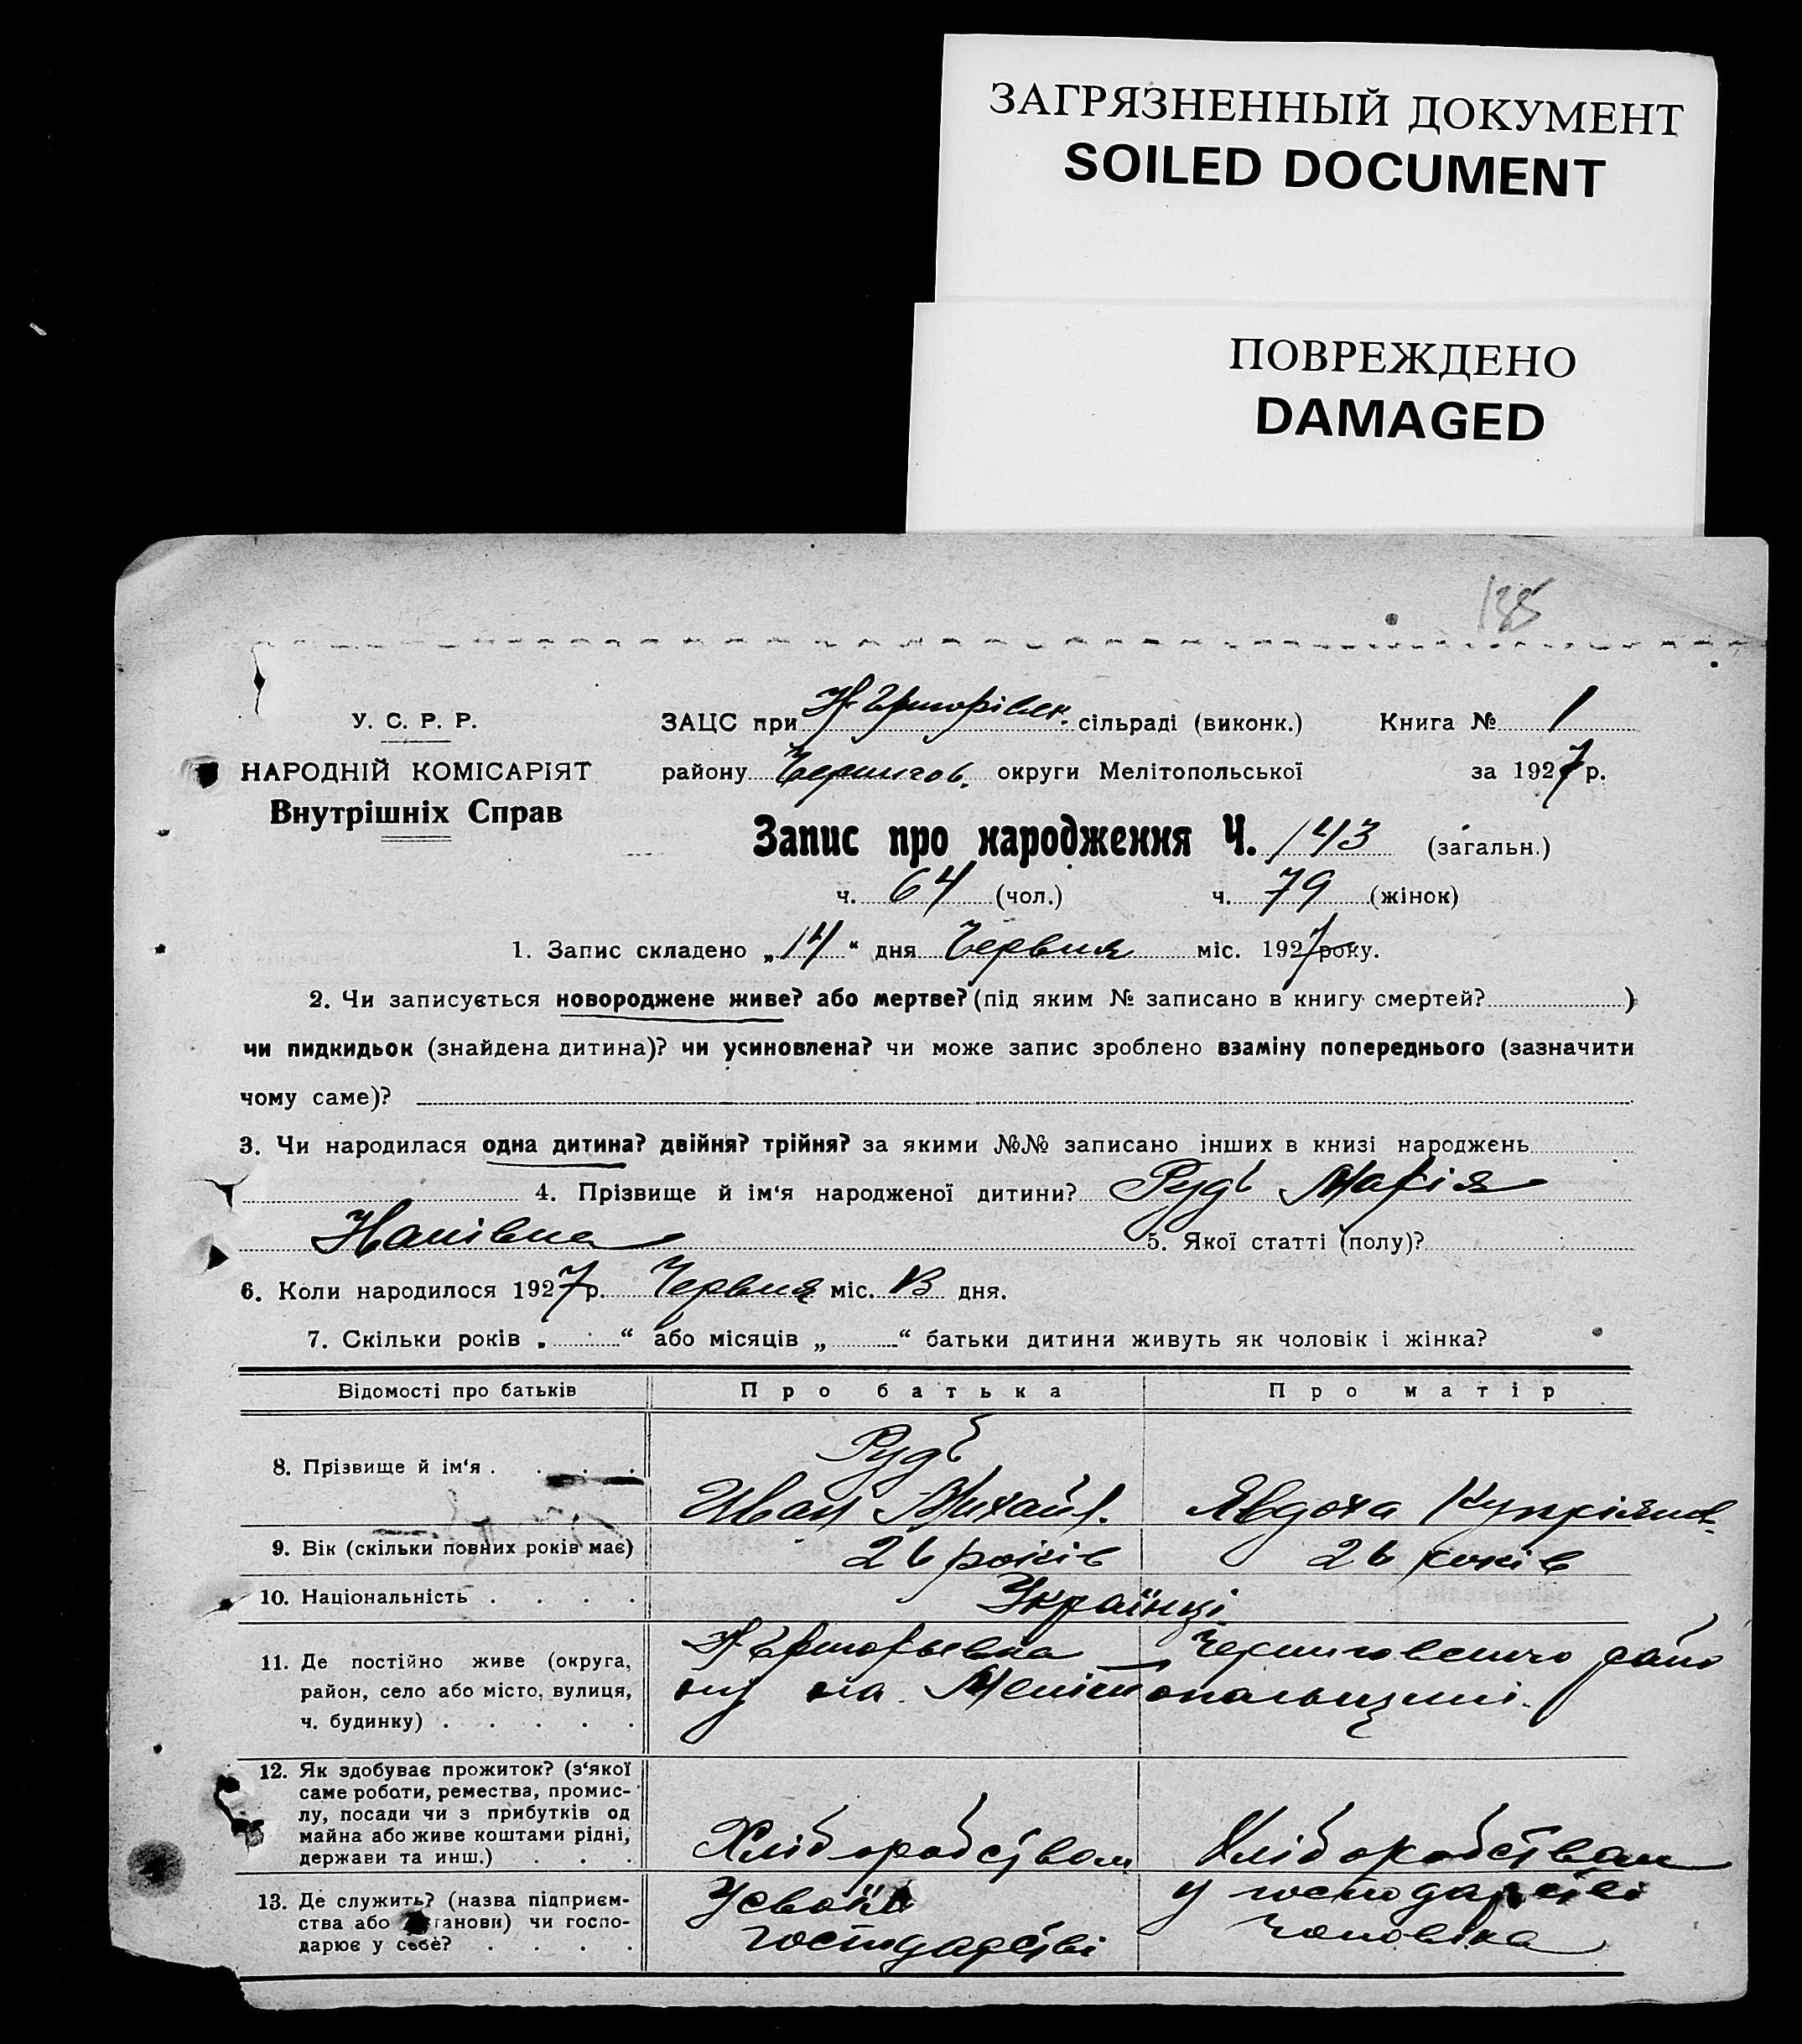 ЗАГРЯЗНЕННЫЙ ДОКУМЕНТ
SOILED DOCUMENT
ПОВРЕЖДЕНО
DAMAGED
У. С. Р. Р.
НАРОДНІЙ КОМІСАРІЯТ
Внутрішніх Справ
ЗАЦС при сільраді (виконк.) Книга № 1
району Чернигов. округи Мелітопольської за 1927 р.
Запис про народження Ч. 143 (загальн.)
ч. 64 (чол.) ч. 79 (жінок)
1. Запис складено „14“ дня Червня міс. 1927 року.
2. Чи записується новороджене живе? або мертве? (під яким № записано в книгу смертей? )
чи пидкидьок (знайдена дитина)? чи усиновлена? чи може запис зроблено взаміну попереднього (зазначити
чому саме)?
3. Чи народилася одна дитина? двійня? трійня? за якими №№ записано інших в книзі народжень
4. Прізвище й ім‘я народженої дитини? Рудь Марія
5. Якої статті (полу)?
6. Коли народилося 1927 р. Червня міс. 13 дня.
7. Скільки років „ “ або місяців „ “ батьки дитини живуть як чоловік і жінка?
Відомості про батьків Про батька Про матір
8. Прізвище й ім‘я . . . .
Рудь
Иван Михайл. Явдоха Купріянов.
9. Вік (скільки повних років має) 26 років 26 років
10. Національність . . . . Українці
11. Де постійно живе (округа,
район, село або місто, вулиця,
ч. будинку) . . . . .
Черниговського райо
ну на Мелітопольщині.
12. Як здобуває прожиток? (з‘якої
саме роботи, ремества, промис-
лу, посади чи з прибутків од
майна або живе коштами рідні,
держави та инш.) . . .
Хліборобством Хліборобством
13. Де служить? (назва підприєм-
ства або установи) чи госпо-
дарює у себе? . . . .
У своїм
господарстві
у господарстві
чоловіка